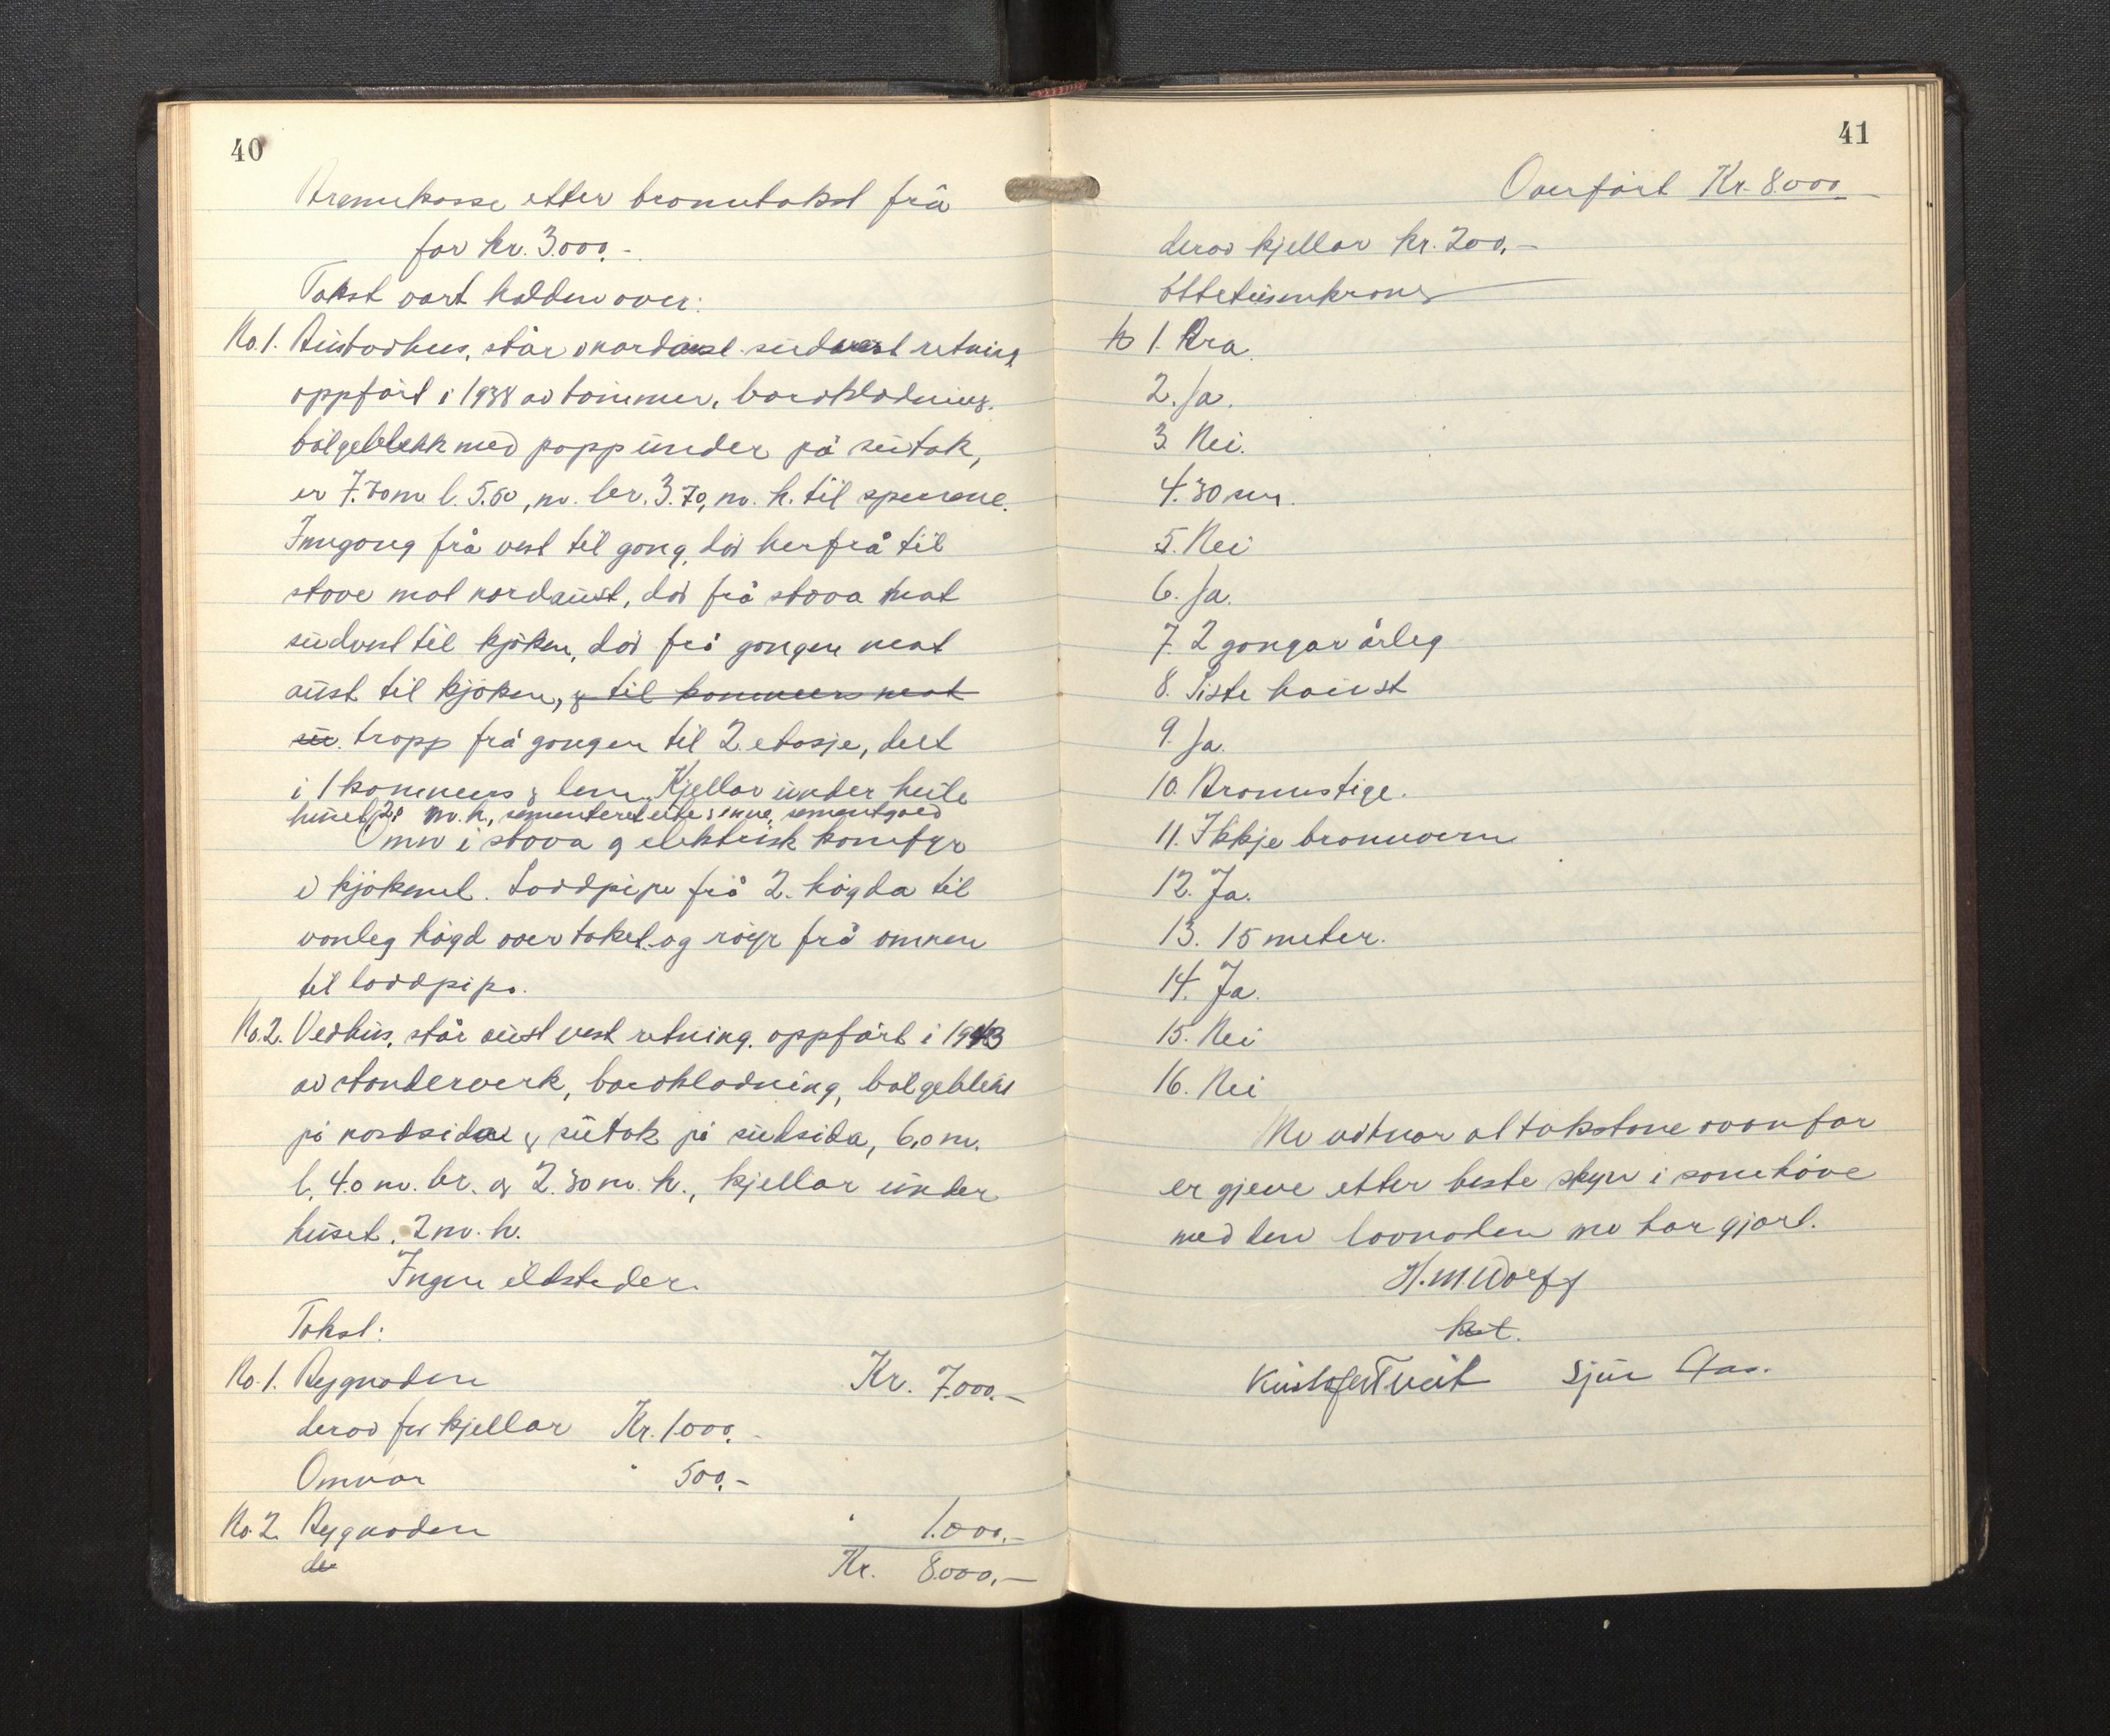 40
Brannkasse etter branntakst frå
for kr. 3.000.-
Takst vart halden over:
No. 1. Bustadhus, står i nordaust-sudvest retning
oppført i 1938 av tømmer, bordkledning,
bølgeblekk med papp under på sutak,
er 7.70 m l. 5.50, m. br. 3.70, m. h. til sperrene.
Inngong frå vest til gong, dør herfrå til
stove mot nordaust, dør frå stova mot
sudvest til kjøken, dør frå gongen mot
aust til kjøken, & til kammers mot
su. tropp frå gongen til 2. etasje, delt
i 1 kammers & lem. Kjellar under heile
huset, m. h., sementert sementgolv
Omn i stova og elektrisk komfyr
i kjøkenet. Loddpipe frå 2. høgda til
vanleg høgd over taket og røyr frå omnen
til loddpipa.
No. 2. Vedhus, står aust vest retning. oppført i 1943
av stenderverk, bordkledning, bølgeblekk
på nordsida & sutak på sudsida, 6,0 m.
l. 4.0 m. br. og 2.30 m. h., kjellar under
huset, 2 m. h.
Ingen eldsteder.
Takst:
No. 1. Bygnaden Kr. 7.000.-
derav for kjellar Kr. 1.000.-
Omnar " 500.-
No. 2. Bygnaden " 1.000.-
de
Kr. 8.000.-
41
Overført Kr. 8.000.-
derav kjellar kr. 200.-
Åttetusenkroner
1. Bra.
2. Ja.
3. Nei.
4. 30 cm.
5. Nei
6. Ja.
7. 2 gongar årleg
8. Siste haust
9. Ja.
10. Brannstige.
11. Ikkje brannvern
12. Ja.
13. 15 meter.
14. Ja.
15. Nei
16. Nei
Me vitnar at takstane ovanfor
er gjeve etter beste skyn i samhøve
med den lovnaden me har gjort.
H. M. Wolff
kst.
Kristofer Tveit Sjur Aas.